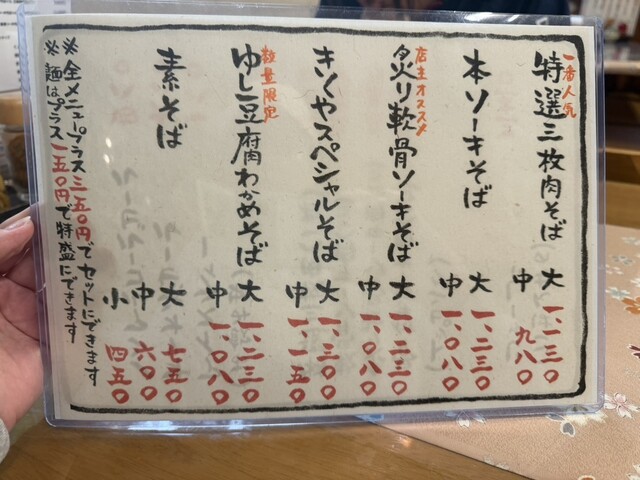 一番人気
特選三枚肉そば
大 一、一三〇
中 九八〇
本ソーキそば
大 一、二三〇
中 一、〇八〇
店主オススメ
炙り軟骨ソーキそば
大 一、二三〇
中 一、〇八〇
きくやスペシャルそば
大 一、三〇〇
中 一、一五〇
数量限定
ゆし豆腐わかめそば
大 一、二三〇
中 一、〇八〇
素そば
大 七五〇
中 六〇〇
小 四五〇
※全メニュープラス三五〇円でセットにできます
※麺はプラス一五〇円で特盛にできます